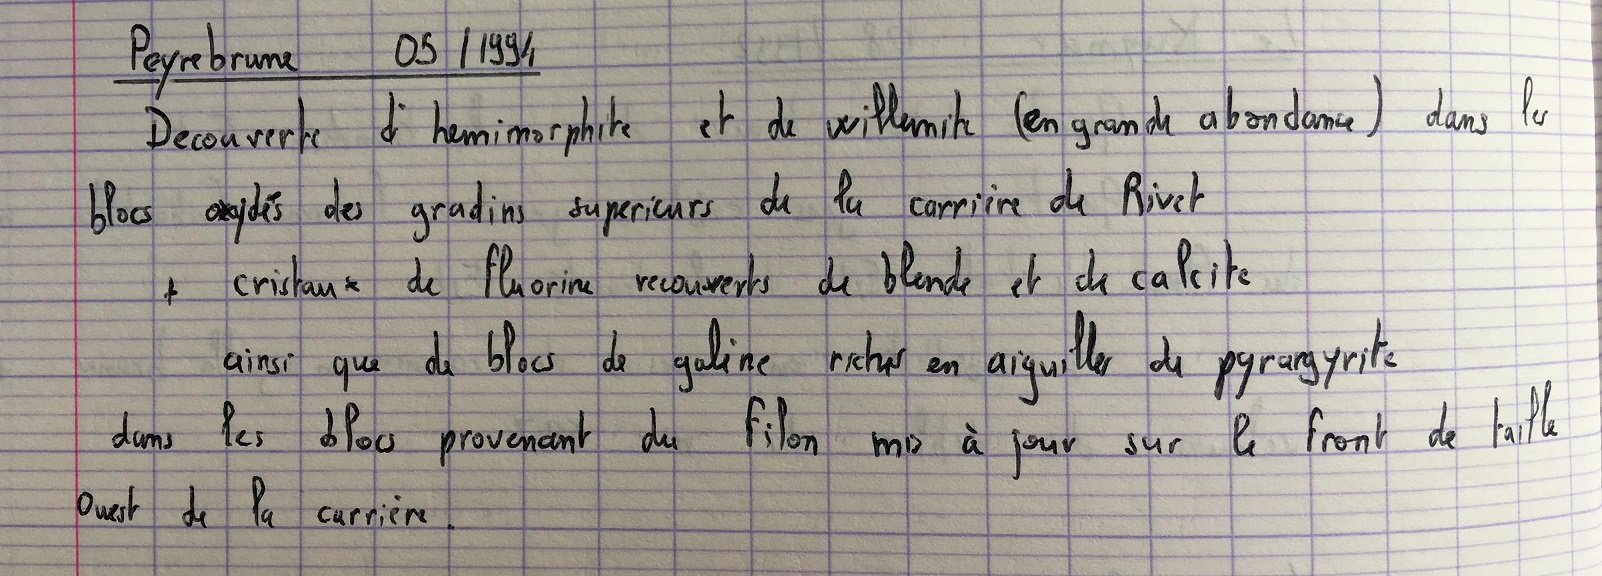 Peyrebrune 05 / 1994
Decouverte d'hemimorphite et de willemite (en grande abondance) dans les
blocs oxydés des gradins superieurs de la carrière de Rivet
+ cristaux de fluorine recouverts de blende et de calcite
ainsi que de blocs de galène riches en aiguilles de pyrargyrite
dans les blocs provenant du filon mis à jour sur le front de taille
Ouest de la carrière.